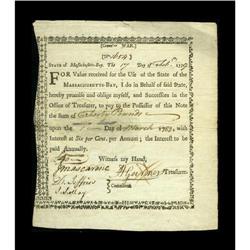 (Consider WAR.)
STATE of Massachusetts-Bay. The 17 Day of
FOR Value received for the Use of the State of
MASSACHUSETTS-BAY, I do in Behalf of said State,
hereby promise and oblige myself, and Successors in the
Office of Treasurer, to pay to the Possessor of this Note
the Sum of Eighty Pounds
upon the Day of March 1782, with
Interest at Six per Cent. per Annum: the Interest to be
paid Annually.
Witness my Hand,
J Mascarene
Treasurer.
D. Jeffries
Committee.